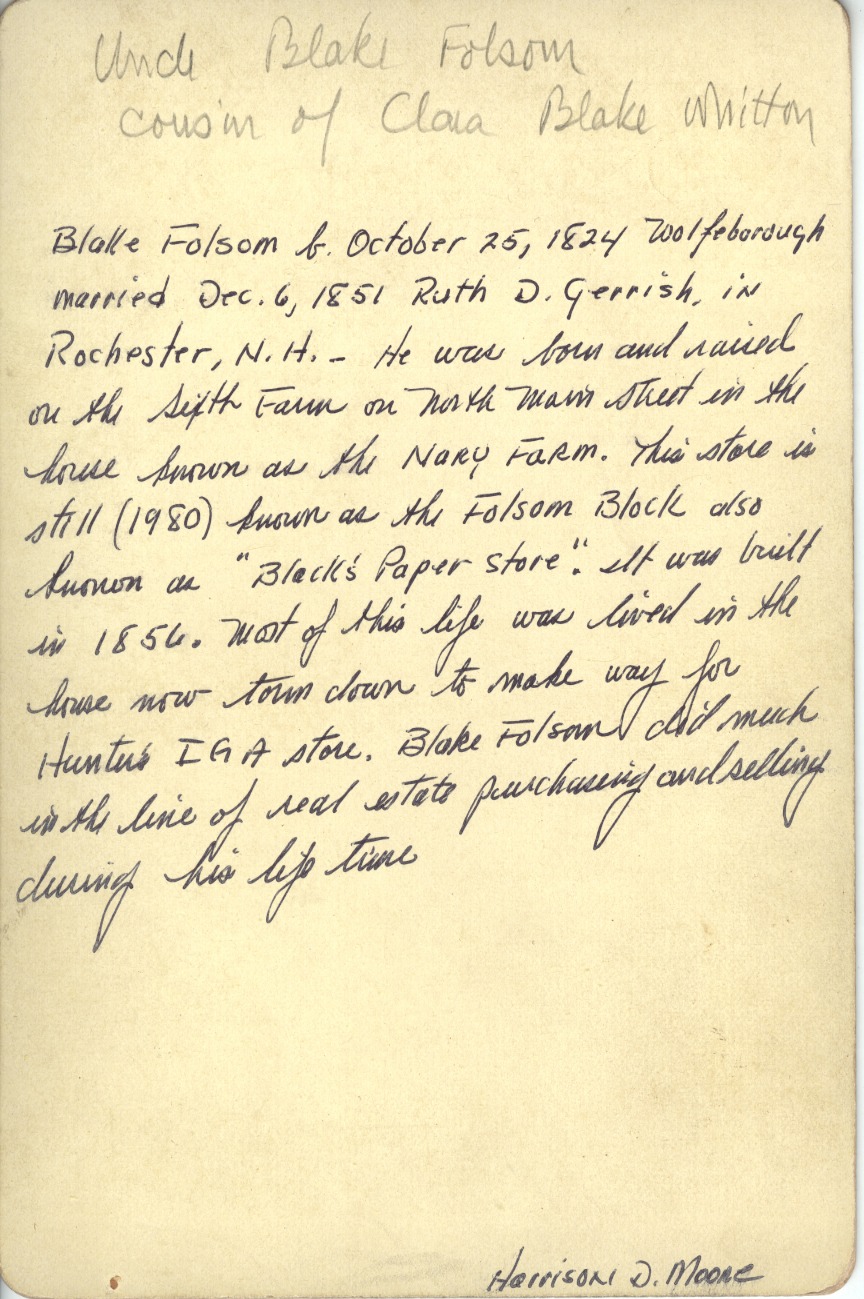 Uncle Blake Folsom
cousin of Clara Blake Whitton
Blake Folsom b. October 25, 1824 Wolfeborough
married Dec. 6, 1851 Ruth D. Gerrish, in
Rochester, N.H. - He was born and raised
on the Sixth Farm on North Main Street in the
house known as the Nary Farm. This store is
still (1980) known as the Folsom Block also
known as "Black's Paper Store". It was built
in 1856. Most of this life was lived in the
house now torn down to make way for
Hunter's IGA store. Blake Folsom did much
in the line of real estate purchasing and selling
during his life time
Harrison D. Moore